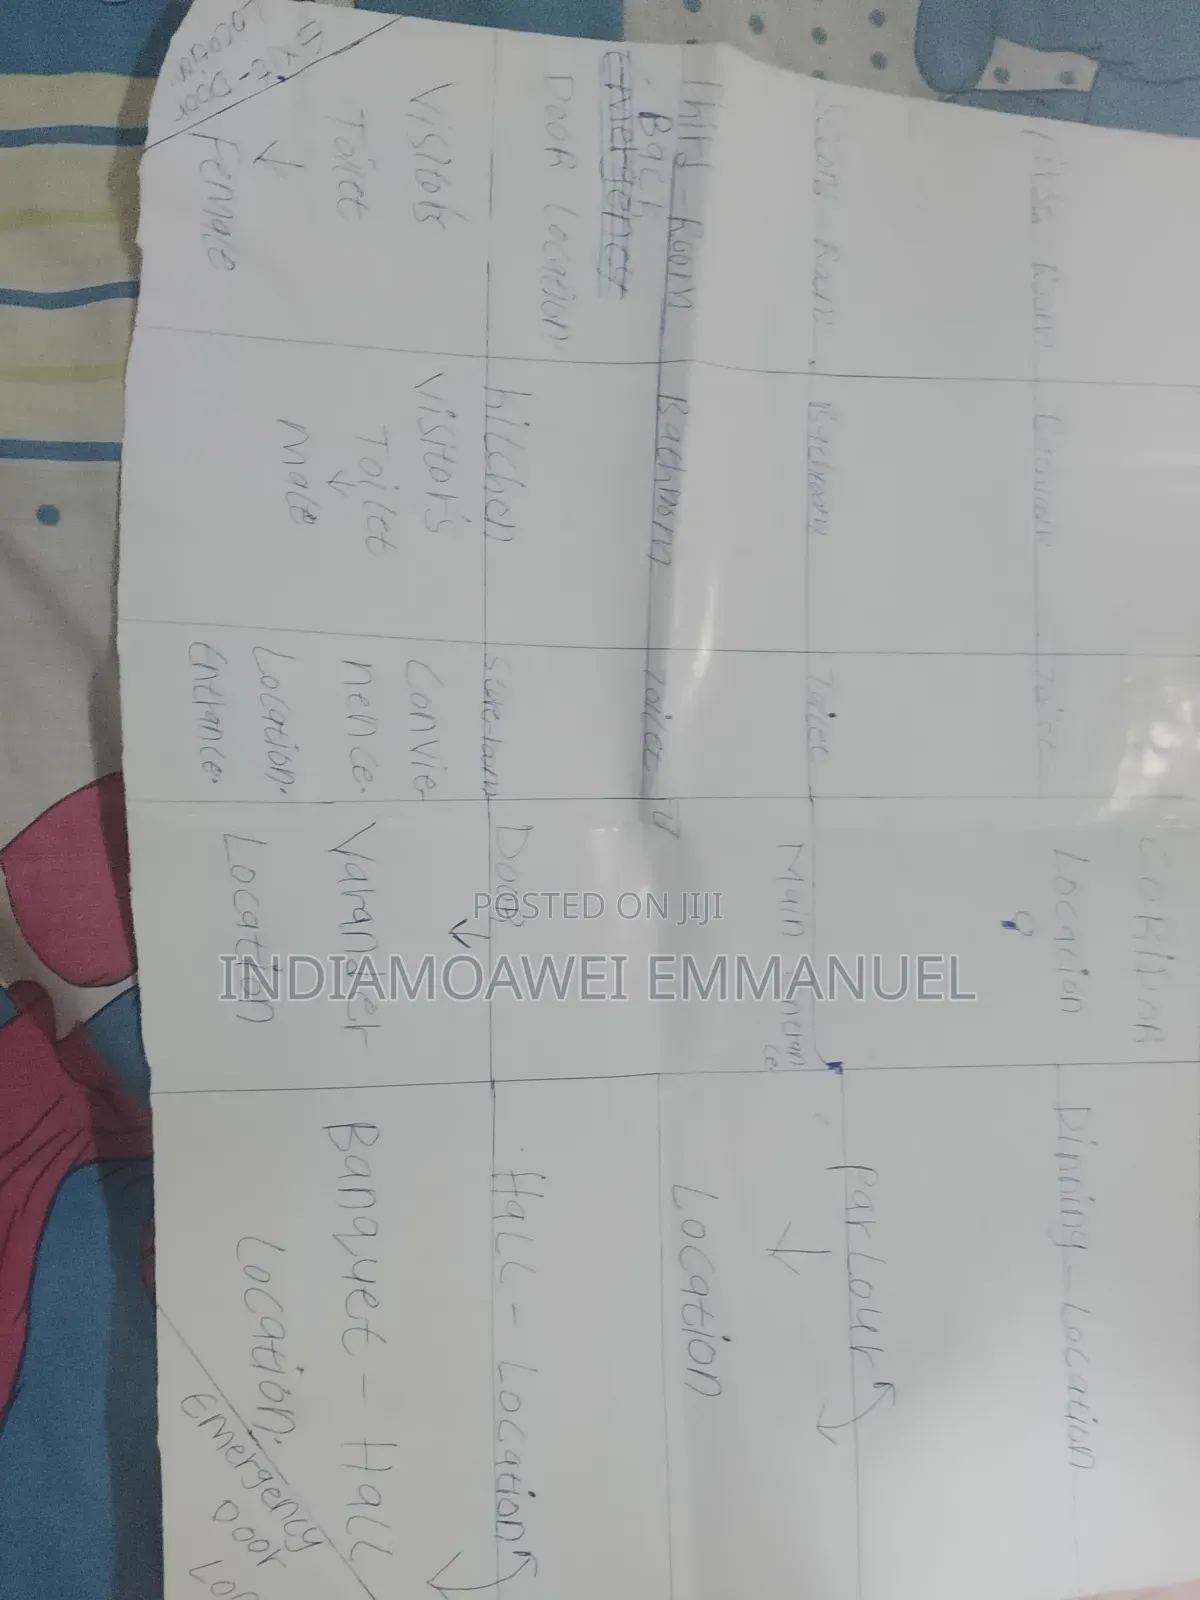 Room
Toilet
CORIDOR
Location
Dinning - Location
Second - Room
Bathroom
Toilet
Main entran
ce
ParLour
Location
Third - Room
Bathroom
Toilet
Back
Emergency
Door Location.
kitchen
Store-room
Door
Hall - Location
Visitors
Toilet
Female
Visitor's
Toilet
Male
Convie
nence.
Location.
Entrance.
Varander
Location
Banquet - Hall
Location.
Emergency
Door
Door
Location
POSTED ON JIJI
INDIAMOAWEI EMMANUEL